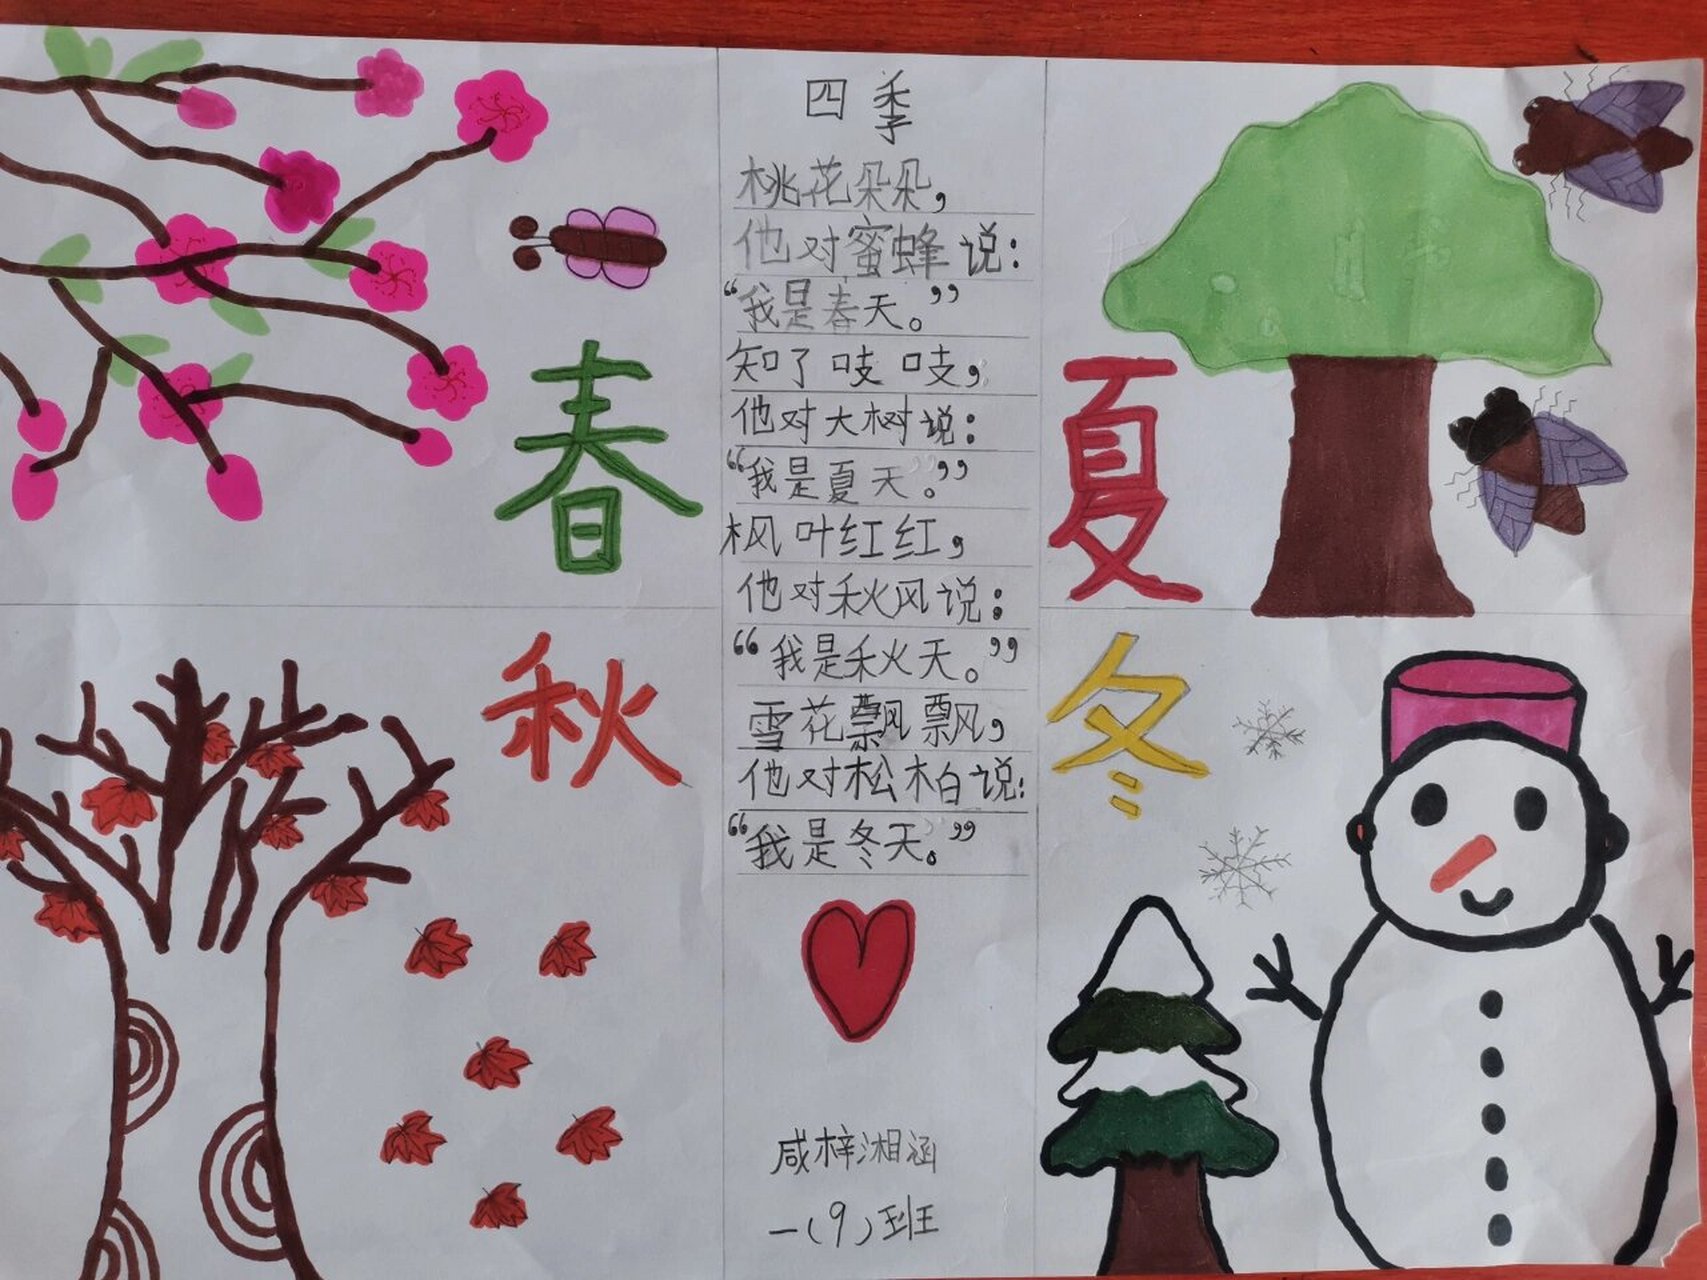 四季
桃花朵朵，
他对蜜蜂说：
“我是春天。”
知了吱吱，
他对大树说：
“我是夏天。”
枫叶红红，
他对秋风说：
“我是秋天。”
雪花飘飘，
他对松柏说：
“我是冬天。”
咸梓湘涵
一（9）班
春
夏
秋
冬